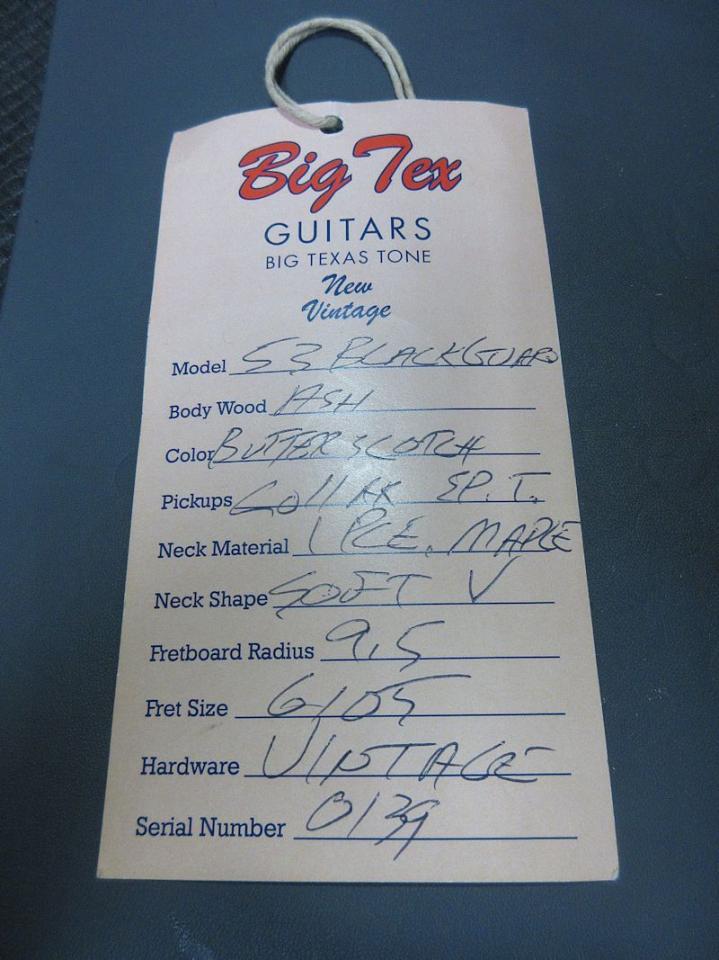 Big Tex
GUITARS
BIG TEXAS TONE
New
Vintage
Model 53 BLACKGUARD
Body Wood ASH
Color BUTTERSCOTCH
Pickups LOLLAR SP. T.
Neck Material 1 PCE. MAPLE
Neck Shape SOFT V
Fretboard Radius 9.5
Fret Size 6105
Hardware VINTAGE
Serial Number 0139